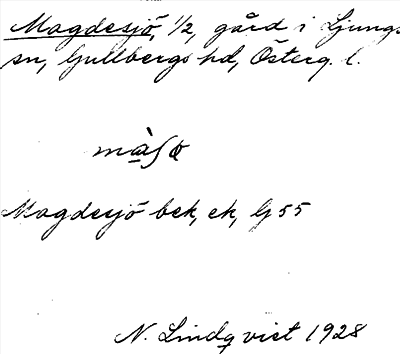 Magdesjö, 1/2, gård i Ljungs
sn, Gullbergs hd, Österg. l.
Magdesjö bek, ek, G 55
N. Lindqvist 1928